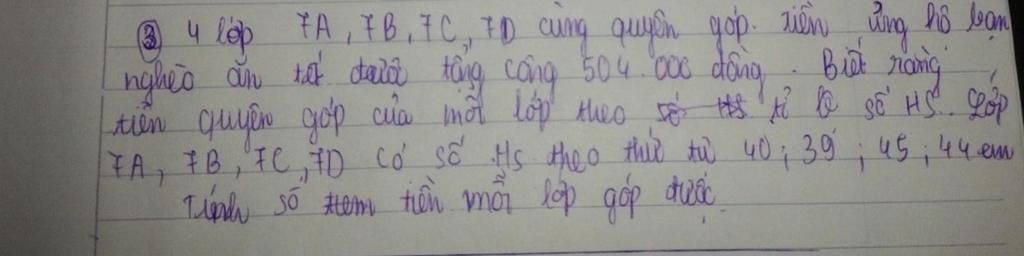 ③ 4 lớp 7A, 7B, 7C, 7D cùng quyên góp tiền ủng hộ bạn
nghèo ăn tết được tổng cộng 504.000 đồng. Biết rằng
tiền quyên góp của mỗi lớp theo số HS tỉ lệ số HS. Lớp
7A, 7B, 7C, 7D có số Hs theo thứ tự 40; 39; 45; 44 em
Tính số tem tiền mỗi lớp góp được.